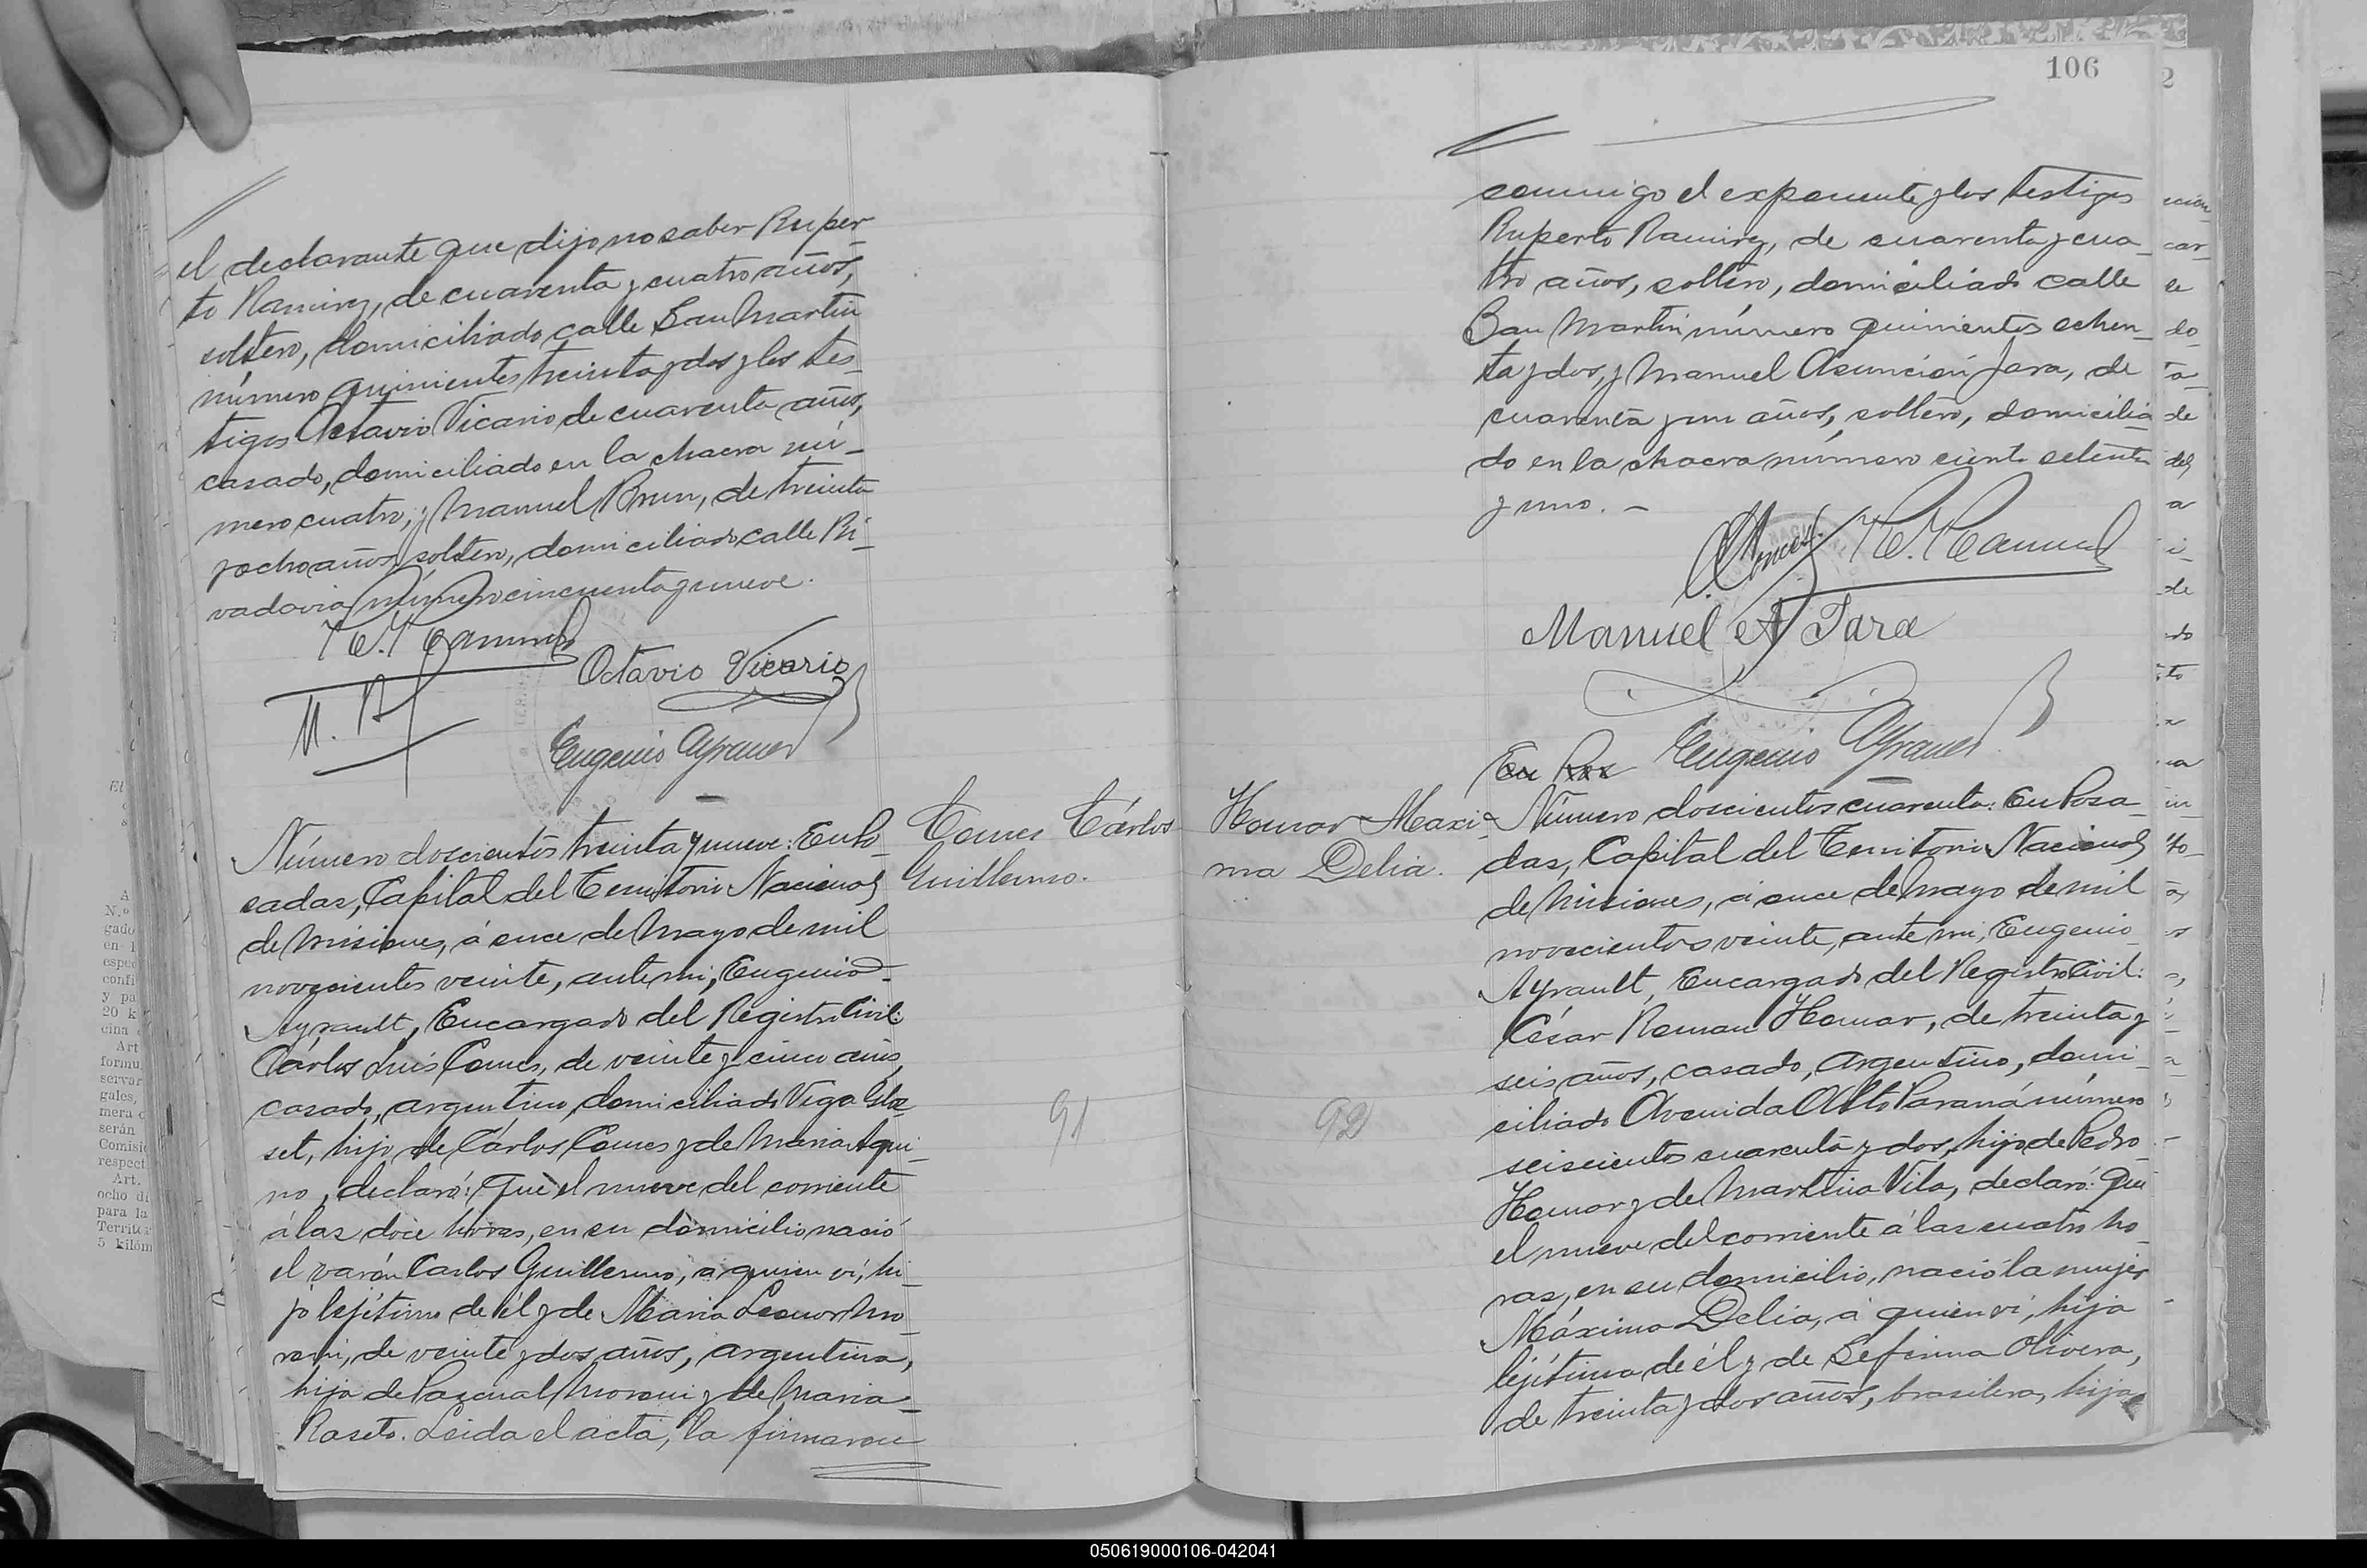 el declarante que dijo no saber Ruper-
to Ramirez, de cuarenta y cuatro años,
soltero, domiciliado calle San Martin
número quinientos treinta y dos y los tes-
tigos Octavio Vicario de cuarenta años,
casado, domiciliado en la chacra nú-
mero cuatro, y Manuel Brun, de treinta
y ocho años, soltero, domiciliado calle Ri-
vadavia número cincuenta y nueve.
Octavio Vicario
M. B
Eugenio Ayrault
Número doscientos treinta y nueve: En Po-
sadas, Capital del Territorio Nacional
de Misiones, á once de Mayo de mil
novecientos veinte, ante mi, Eugenio
Ayrault, Encargado del Registro Civil:
Cárlos Luis Comes, de veinte y cinco años,
casado, argentino, domiciliado
set, hijo de Cárlos Comes y de Maria Aqui-
no, declaró: Que el nueve del corriente
á las doce horas, en su domicilio nació
el varón Carlos Guillermo, á quien ví, hi-
jo lejítimo de él y de Maria Leonor Mo-
roni, de veinte y dos años, argentina,
hija de Pascual Moroni y de Maria
Raseto. Leida el acta, la firmaron
Comes Cárlos
Guillermo.
91
106
2
conmigo el exponente y los testigos
Ruperto Ramirez, de cuarenta y cua-
tro años, soltero, domiciliado calle
San Martin número quinientos ochen-
ta y dos, y Manuel Asunción Jara, de
cuarenta y un años, soltero, domicilia-
do en la chacra número ciento setenta
y uno. -
Manuel A Jara
Eugenio Ayrault
Homar Maxi-
ma Delia.
92
Número doscientos cuarenta: En Posa-
das, Capital del Territorio Nacional
de Misiones, á once de Mayo de mil
novecientos veinte, ante mi, Eugenio
Ayrault, Encargado del Registro Civil:
César Roman Homar, de treinta y
seis años, casado, argentino, domi-
ciliado Avenida Alto Paraná número
seiscientos cuarenta y dos, hijo de Pedro
Homar y de Martina Vila, declaró: Que
el nueve del corriente á las cuatro ho-
ras, en su domicilio, nació la mujer
Máxima Delia, á quien ví, hija
lejítima de él y de Sefirina Olivera,
de treinta y dos años, brasilera, hija
050619000106-042041